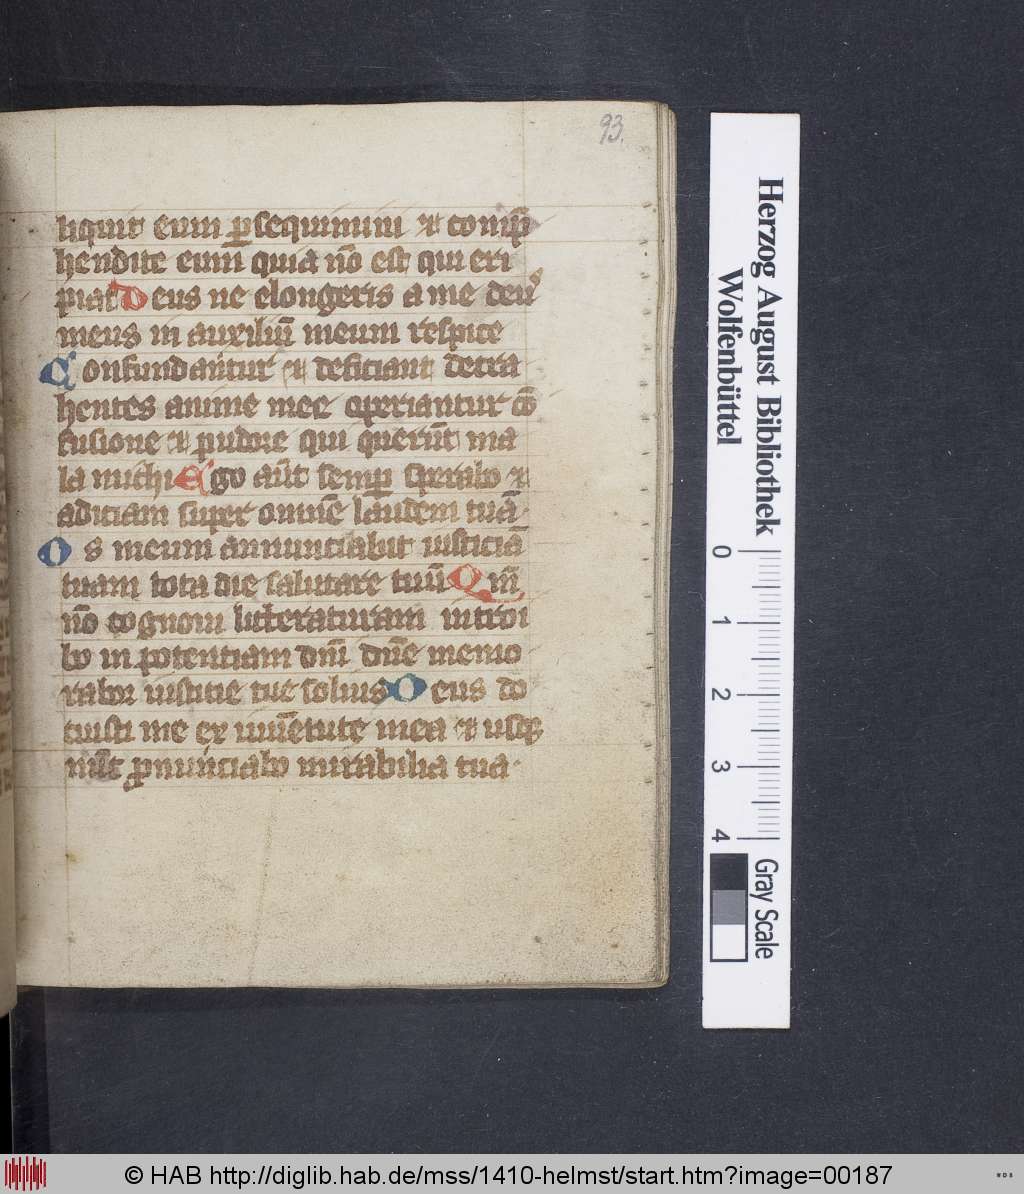 93.
liquit eum ꝑsequimini ⁊ comp̄
hendite eum quia nō est qui eri
piat Deus ne elongeris a me deus
meus in auxiliū meum respice
Confundantur ⁊ deficiant detra
hentes anime mee operiantur cō
fusione ⁊ pudore qui querūt ma
la michi Ego aūt semꝑ sperabo ⁊
adiciam super omnē laudem tuā
Os meum annunciabit iusticiā
tuam tota die salutare tuū Qm̄
nō cognoui litteraturam introi
bo in potentiam dn̄i dn̄e memo
rabor iustitie tue solius Deus do
cuisti me ex iuuētute mea ⁊ usqꝫ
nūc ꝓnunciabo mirabilia tua
Herzog August Bibliothek
Wolfenbüttel
0 1 2 3 4
Gray Scale
© HAB http://diglib.hab.de/mss/1410-helmst/start.htm?image=00187